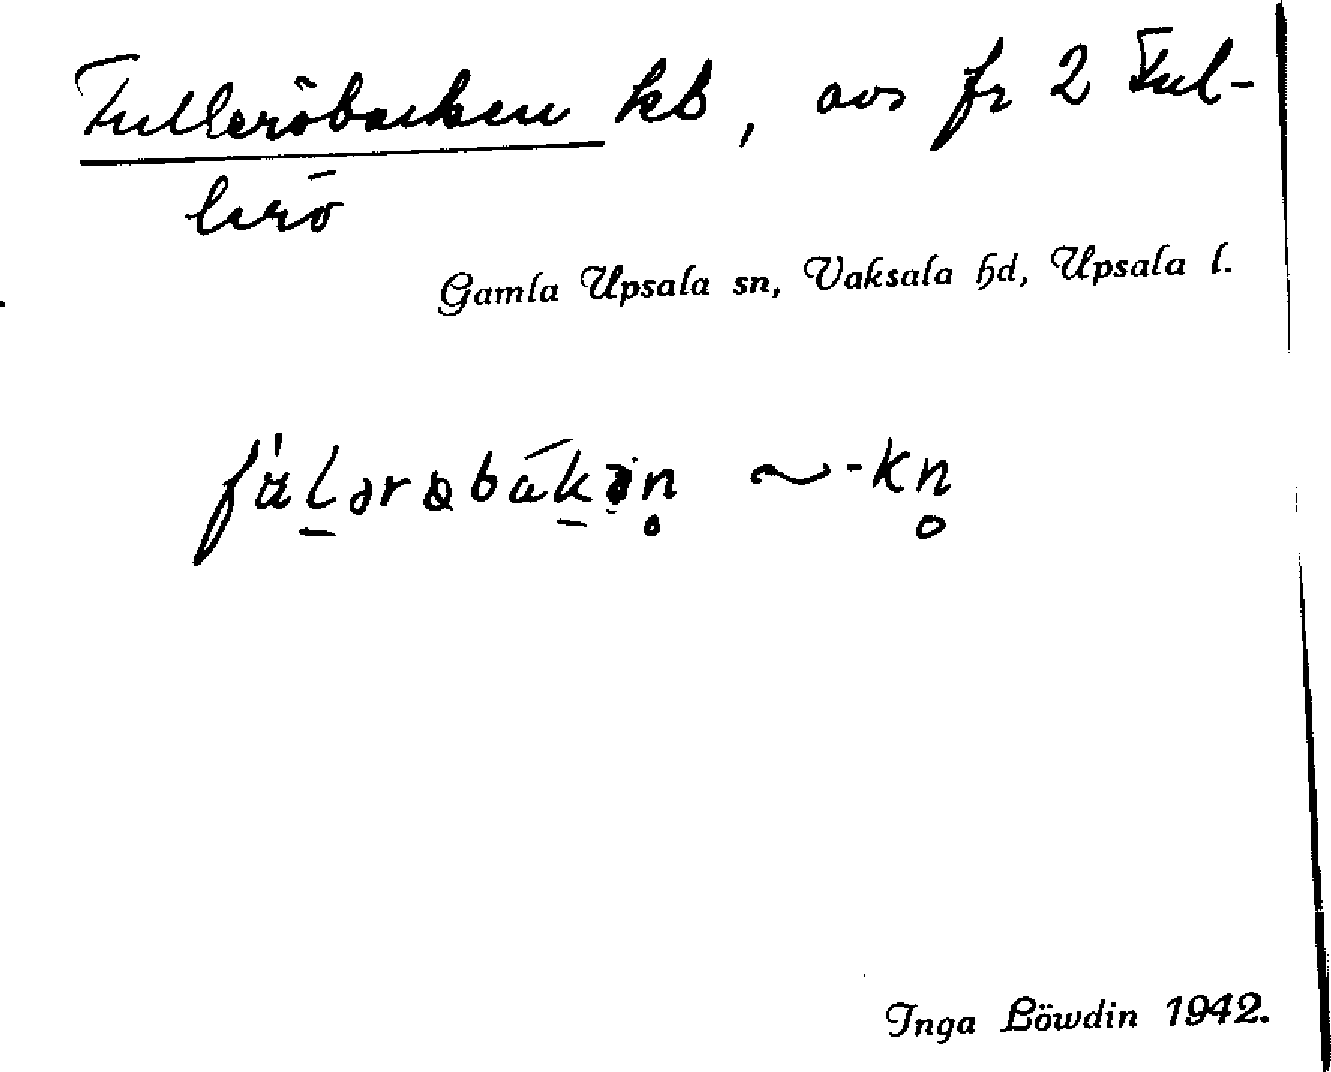 Fulleröbacken lb, avs fr 2 Ful-
lerö
Gamla Upsala sn, Vaksala hd, Upsala l.
fúlərɵbákən ~ -kn̥
Inga Löwdin 1942.